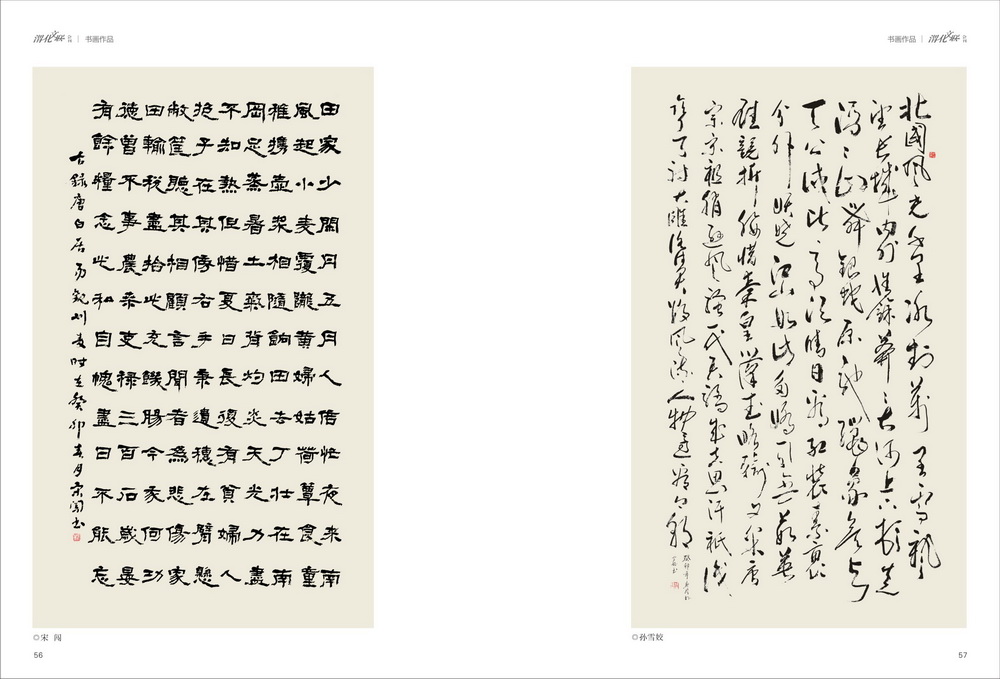 渭化文联 会刊 | 书画作品
田家少閑月五月人倍忙夜來南
風起小麥覆隴黃婦姑荷簞食童
稚攜壺漿相隨餉田去丁壯在南
岡足蒸暑土氣背灼炎天光力盡
不知熱但惜夏日長復有貧婦人
抱子在其傍右手秉遺穗左臂懸
敝筐聽其相顧言聞者為悲傷家
田輸稅盡拾此充饑腸今我何功
德曾不事農桑吏祿三百石歲晏
有餘糧念此私自愧盡日不能忘
右錄唐白居易觀刈麥時在癸卯春月宋闖書
◎宋 闯
56
书画作品 | 渭化文联 会刊
北國風光千里冰封萬里雪飄
望長城內外惟餘莽莽大河上下頓失
滔滔山舞銀蛇原馳蠟象欲與
天公試比高須晴日看紅裝素裹
分外妖嬈江山如此多嬌引無數英
雄競折腰惜秦皇漢武略輸文采唐
宗宋祖稍遜風騷一代天驕成吉思汗祇識
彎弓射大雕俱往矣數風流人物還看今朝
◎孙雪姣
57